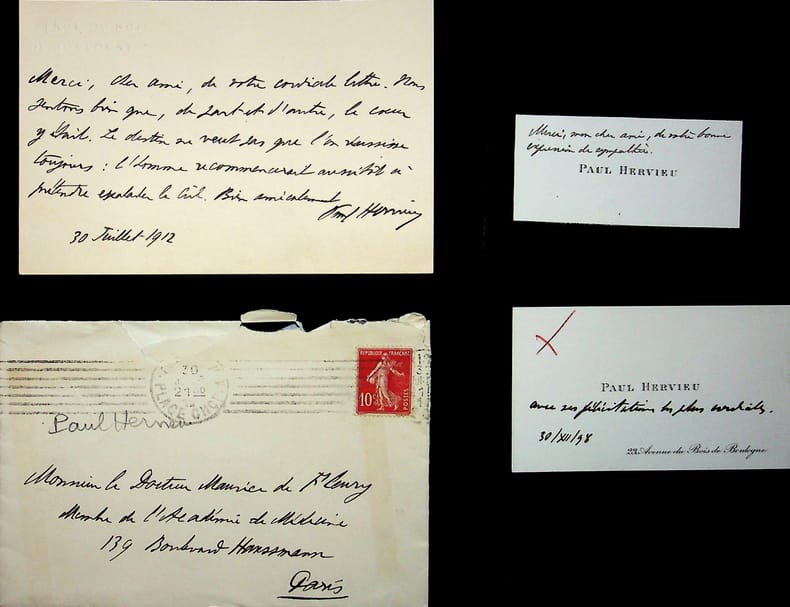 Merci, cher ami, de votre cordiale lettre. Nous
sentons bien que, de part et d'autre, le cœur
y était. Le destin ne veut pas que l'on réussisse
toujours : l'homme recommencerait aussitôt à
prétendre escalader le Ciel. Bien amicalement
Paul Hervieu
30 Juillet 1912
Merci, mon cher ami, de votre bonne
expression de sympathie.
PAUL HERVIEU
30
PLACE CHOPIN
REPUBLIQUE FRANÇAISE
10c
POSTES
Paul Hervieu
Monsieur le Docteur Maurice de Fleury
Membre de l'Académie de Médecine
139 Boulevard Haussmann
Paris
PAUL HERVIEU
avec ses félicitations les plus cordiales.
30/XII/98
23, Avenue du Bois de Boulogne